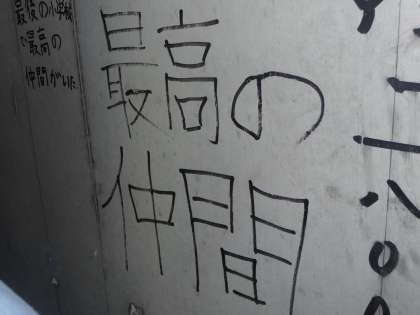 最後の小学校
で最高の
仲間がいた
最高の
仲間